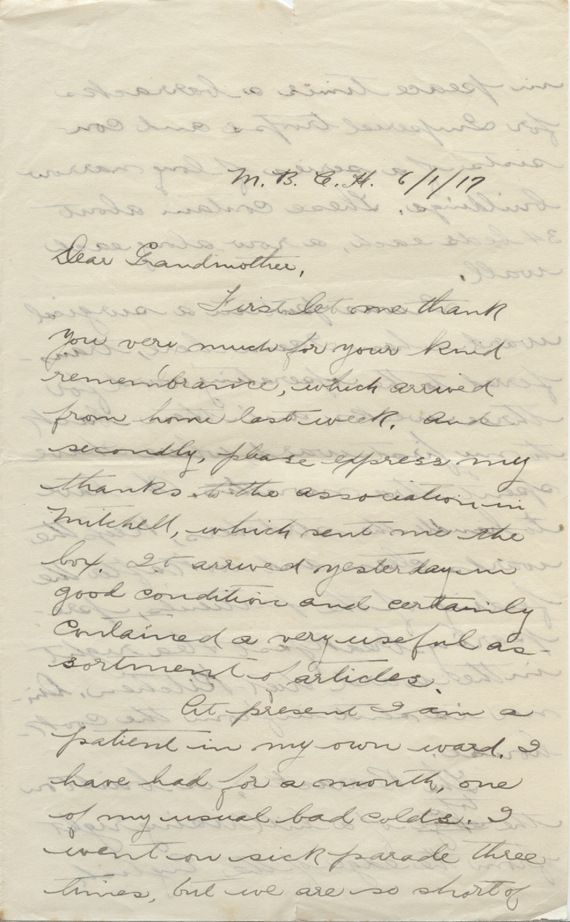 M. B. C. H. 6/1/17
Dear Grandmother,
First let me thank
you very much for your kind
remembrance, which arrived
from home last week. And
secondly, please express my
thanks to the association in
Mitchell, which sent me the
box. It arrived yesterday in
good condition and certainly
contained a very useful as-
sortment of articles.
At present I am a
patient in my own ward. I
have had for a month, one
of my usual bad colds. I
went on sick parade three
times, but we are so short of